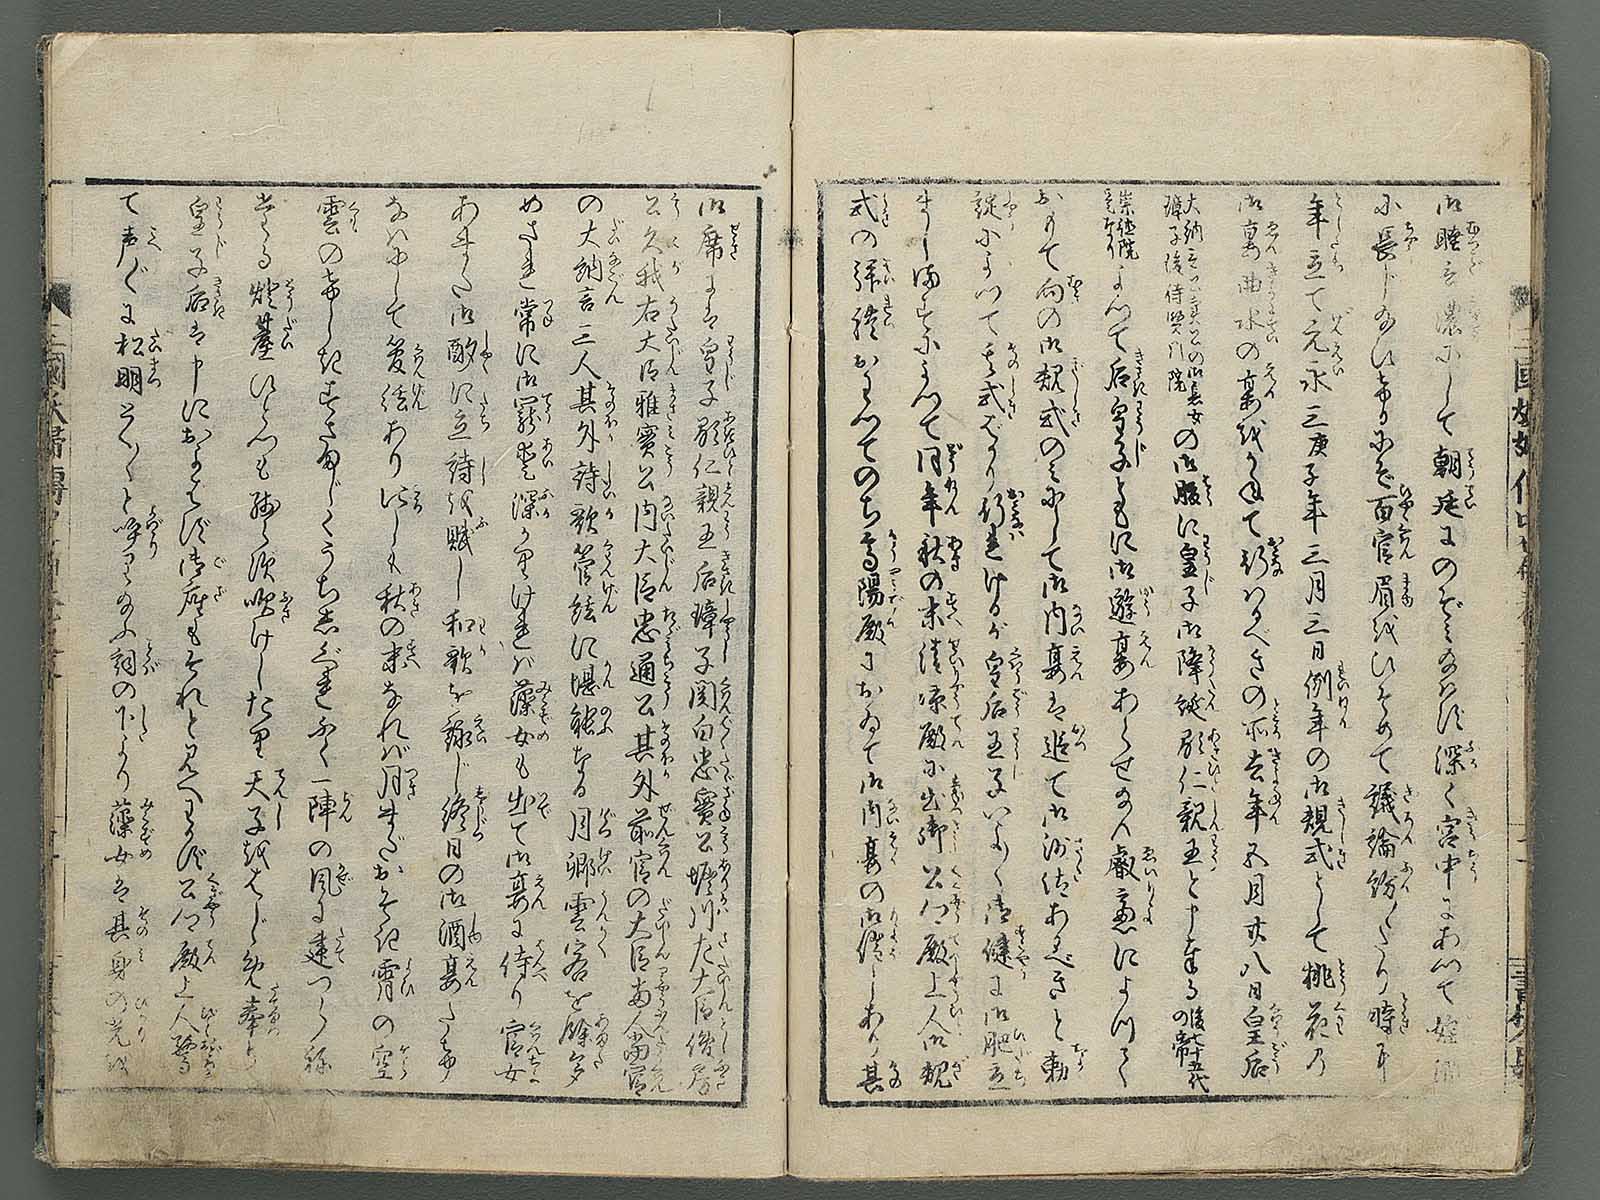 御睦言濃にして朝廷にのぞみ給はず深く宮中にあつて婬酒
に長じ給ひけるにぞ百官眉をひそめて議論紛々たり時に
年立て元永三庚子年三月三日例年の御規式として桃花の
御宴曲水の宴をかねて行るべきの所去年五月廿八日皇后
大納言公実公の御長女
璋子後侍賢門院
の御腹に皇子御降誕顕仁親王と申奉る
後七十五代
の帝
崇徳院
よつて后皇子ともに御遊宴あらせ給ん叡慮によつてく
おもて向の御規式のみにして御内宴は追て御沙汰あるべきと勅
諚によつて其式ばかり行はれけるが皇后王子いよ〱御健に御肥立
ましますによつて同年秋の末清凉殿に出御公卿殿上人御規
式の拝礼おわつてのち陽殿において御内宴の御催しあり其
御席には皇子顕仁親王后璋子関白忠実公堀川左大臣俊房
公久我右大臣雅実公内大臣忠通公其外前官の大臣両人当官
の大納言三人其外詩歌管絃に堪能なる月卿雲客を余多
めされ常に御寵愛深かりければ藻女も出て御宴に侍り官女
あまた御酌に立詩を賦し和歌を詠じ終日の御酒宴たけ
なはにして管絃ありころしも秋の末なれば月まだおそき宵の空
雲のけしきすさまじくうちしぐれふく一陣の風に連つらね
たる燈台ひとつも残らず吹けしたり天子をはじめ奉り
皇子后は申におよばず御座もそれと見へわかず公卿殿上人驚
て声々に松明〱と呼はる給ふ詞の下より藻女は其身の光を
三国妖婦伝中編巻之